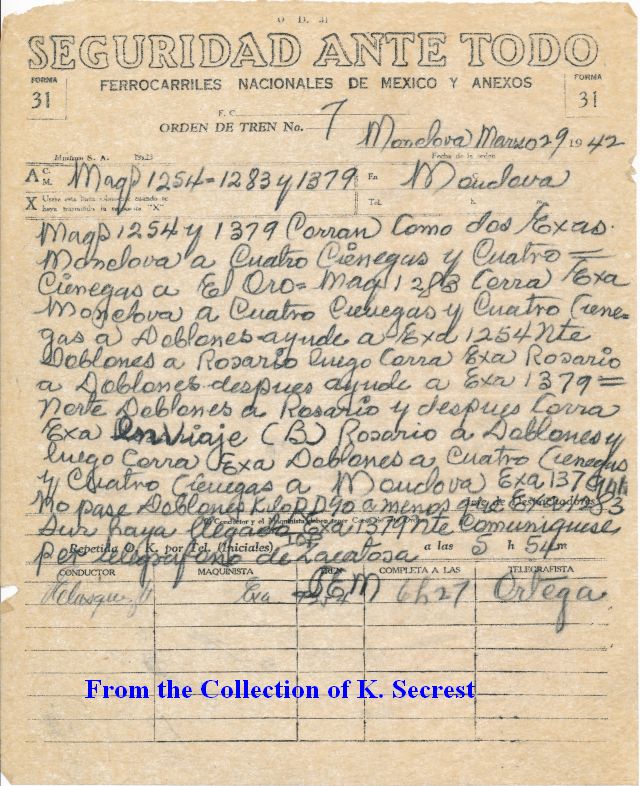 O D. 31
SEGURIDAD ANTE TODO
FORMA 31
FERROCARRILES NACIONALES DE MEXICO Y ANEXOS
FORMA 31
F. C.
ORDEN DE TREN No. 7
Monclova Marzo 29 1942
Fecha de la orden
A C. M. Maqs 1254=1283 y 1379 En Monclova
X Usese esta línea solamente cuando se
haya transmitido la respuesta "X" Tel. h. m.
Maqs 1254 y 1379 Corran Como dos Exas.
Monclova a Cuatro Ciénegas y Cuatro =
Ciénegas a El Oro= Maq 1283 Corra Exa
Monclova a Cuatro Cienegas y Cuatro Ciene=
gas a Doblones ayude a Exa 1254 Nte
Doblones a Rosario luego Corra Exa Rosario
a Doblones despues ayude a Exa 1379=
Norte Doblones a Rosario y despues Corra
Exa en Viaje (B) Rosario a Doblones y
luego Corra Exa Doblones a Cuatro Cienegas
y Cuatro Cienegas a Monclova Exa 1379
No pase Doblones Kilo D 90 a menos que Exa 1283
Jefe de Despachadores
El Conductor y el Maquinista deben tener
Sur haya llegado Exa 1379 Nte Comuniquese
Repetida O. K. por Tel. (Iniciales) a las 5 h 54 m
por telegrafono de
CONDUCTOR MAQUINISTA TREN COMPLETA A LAS TELEGRAFISTA
Exa JEM 6h27 Ortega
From the Collection of K. Secrest